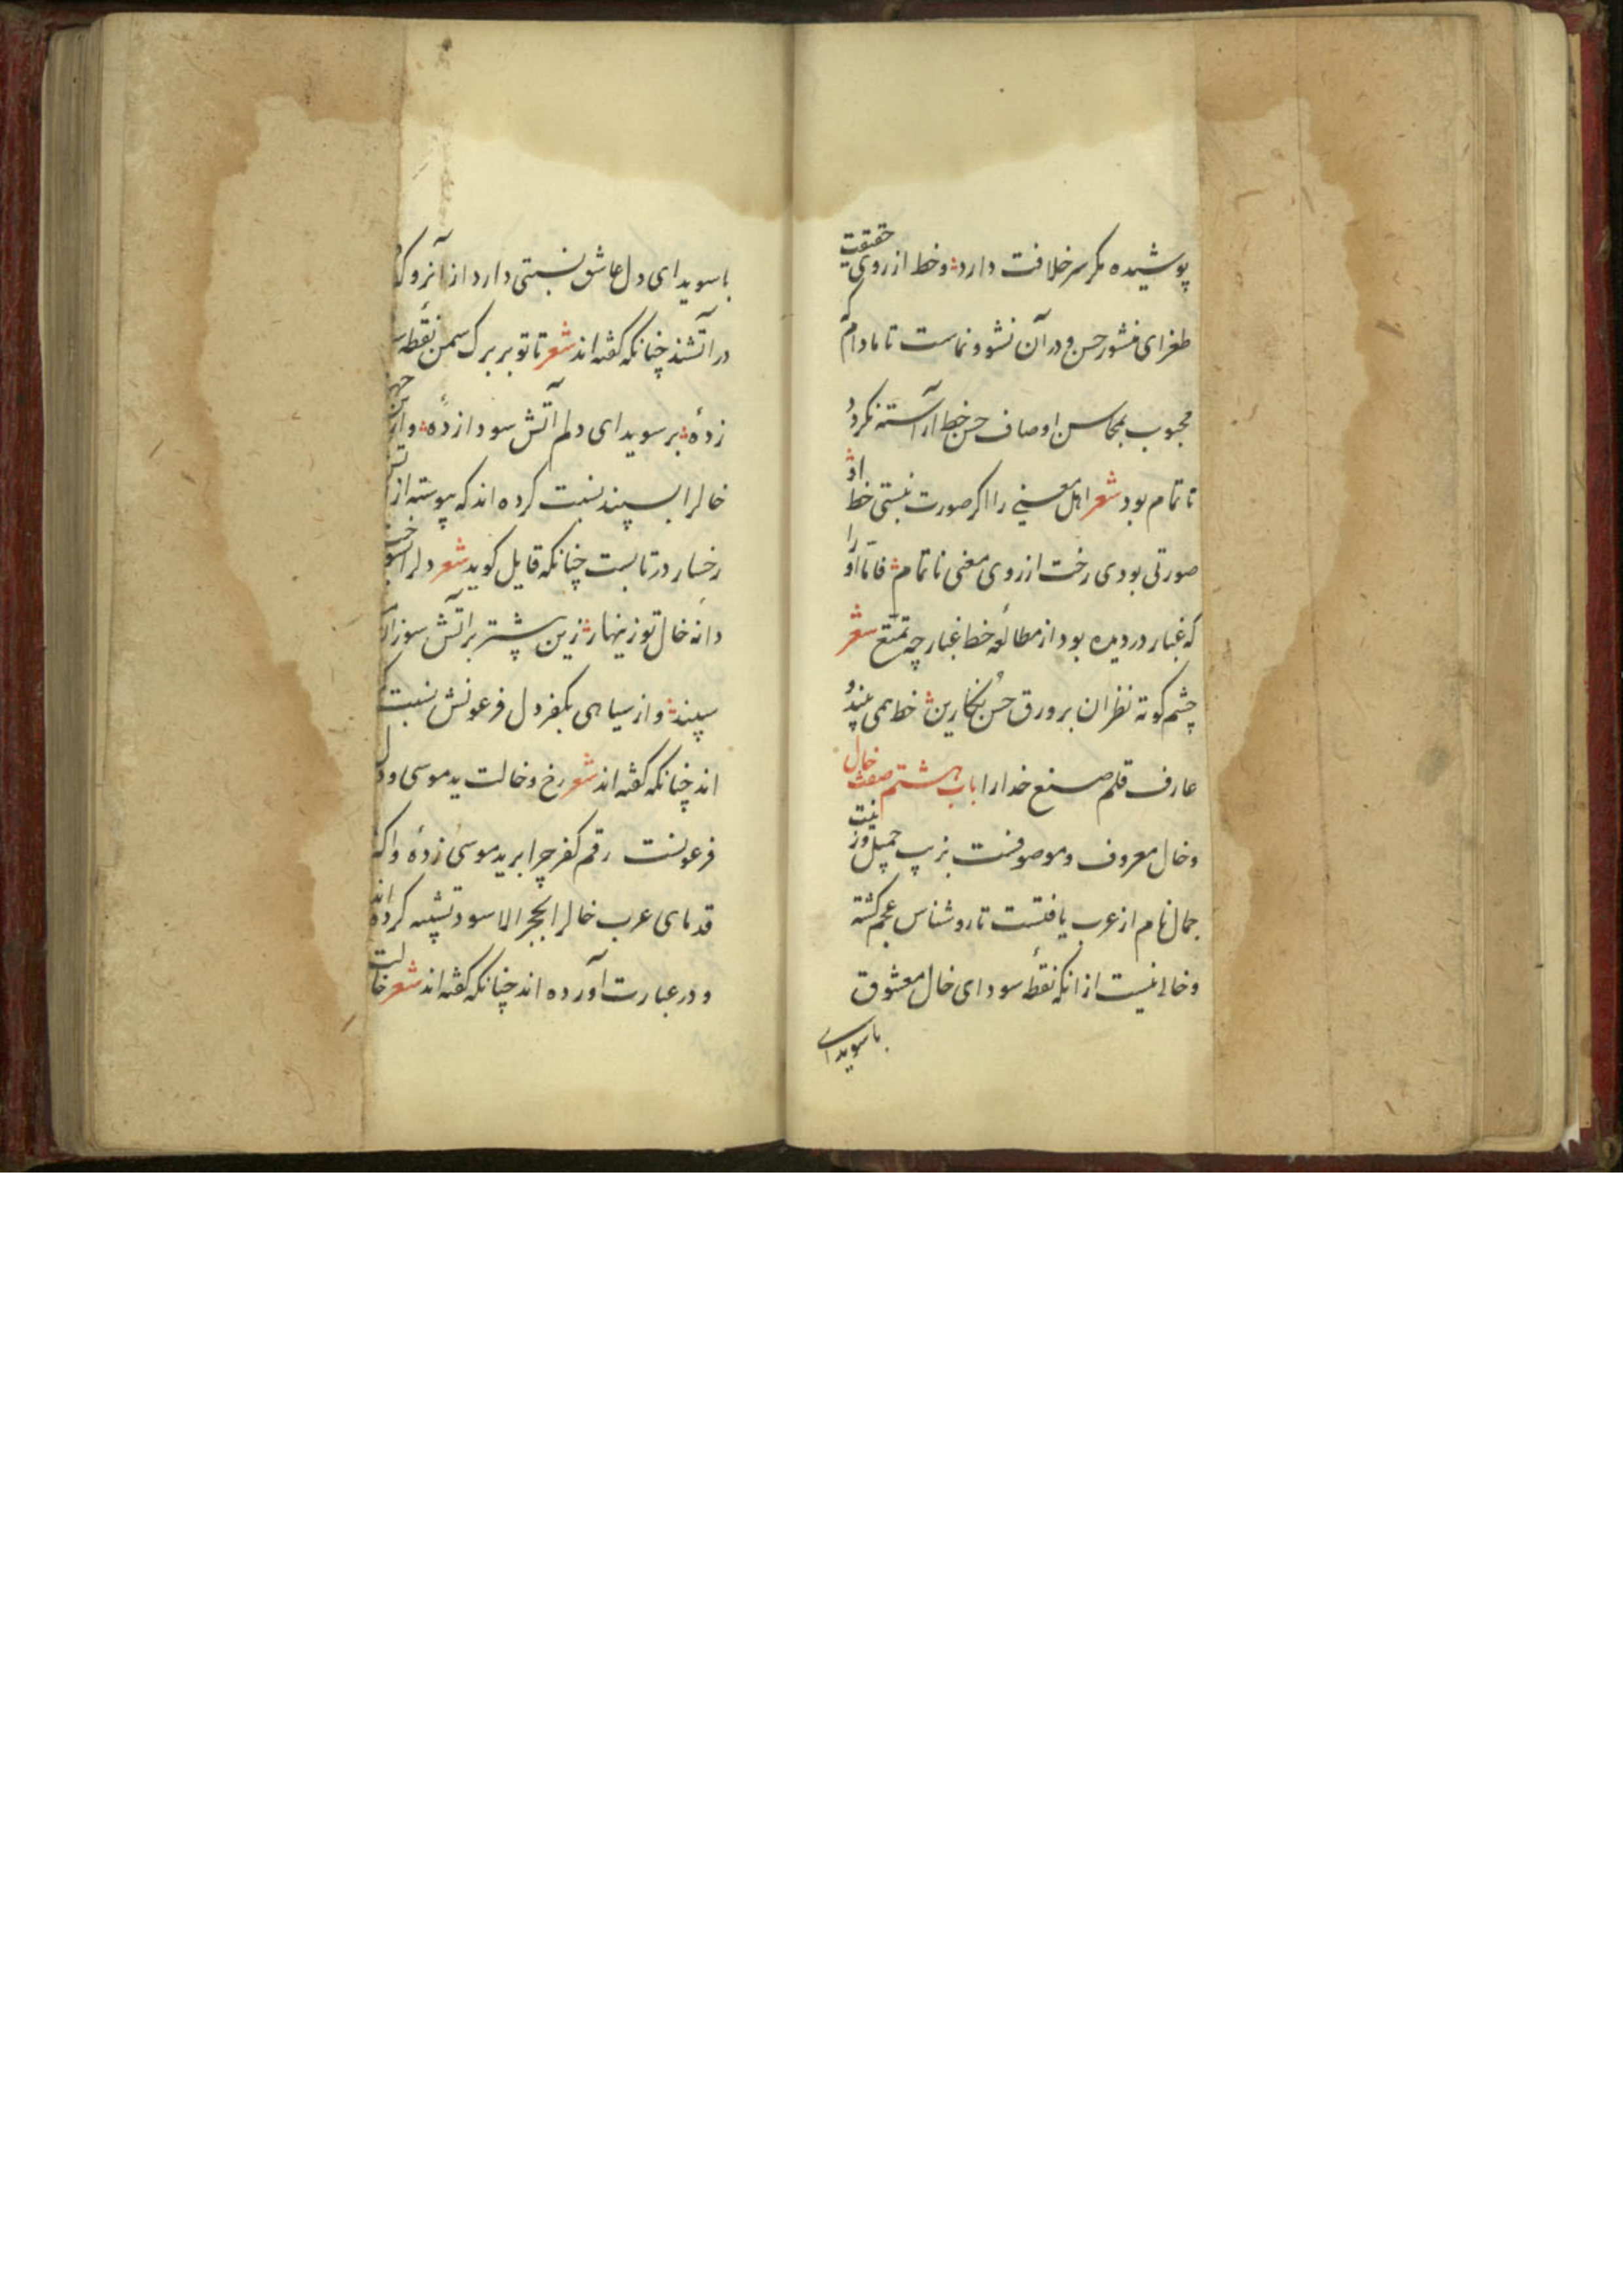 پوشیده مگر سر خلافت دارد و خط از روی حقیقت
طغرای منشور حسن و در آن نشو و نماست تا مادام که
محبوب بمحاسن اوصاف حسن خط آراسته نگردد
ناتمام بود شعر اهل معنی را اگر صورت نبستی خط او
صورتی بودی رخت از روی معنی ناتمام فاما او را
که غبار در دیده بود از مطالعه خط غبار چه تمتع شعر
چشم کوته نظران بر ورق حسن نگارین خط همی بیند و
عارف قلم صنع خدا را باب هشتم صفت خال
و خال معروف و موصوفست بزیب جمیل و زینت
جمال نام از عرب یافتست تا روشناس عجم گشته
و خالی نیست از انکه نقطه سودای خال معشوق
باسویدای
باسویدای دل عاشق نسبتی دارد از آنرو که
در آتشند چنانکه گفته اند شعر تا تو بر برگ سمن نقطه
زدهٔ بر سویدای دلم آتش سودا زدهٔ و از
خالرا بسپند نسبت کرده اند که پیوسته از
رخسار در تابست چنانکه قایل گوید شعر دلرا
دانه خال تو زینهار زین پیشتر بر آتش سوزان
سپند و از سیاهی بکفر دل فرعونش نسبت
اند چنانکه گفته اند شعر رخ و خالت ید موسی و دل
فرعونست رقم کفر چرا برید موسی زدهٔ و اکه
قدمای عرب خالرا بحجر الاسود تشبیه کرده اند
و در عبارت آورده اند چنانکه گفته اند شعر خالت